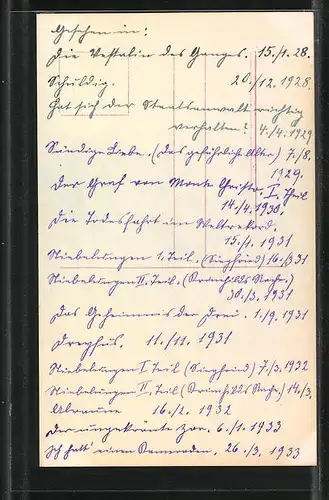 Gesehen in:
Die Vestalin des Ganges. 15./1. 28.
Schuldig. 20./12. 1928.
Hat sich der Staatsanwalt richtig
verhalten? 4./4. 1929
Sündige Liebe. (Das gefährliche Alter) 7./8.
1929.
Der Graf von Monte Christo. I. Theil
14./4. 1930.
Die Todesfahrt im Weltrekord.
15./4. 1931
Niebelungen 1. Teil. (Siegfried) 16./3 31
Niebelungen II. Teil. (Kriemhilds Rache.)
30./3. 1931
Das Geheimnis der Drei. 1./9. 1931
Dreyfus. 11./11. 1931
Niebelungen I Teil (Siegfried) 7./3. 1932
Niebelungen II. Teil (Kriemhilds Rache.) 14./3.
Alraune 16./2. 1932
Der ungekrönte Zar. 6./1. 1933
Ich hatt' einen Kameraden. 26./3. 1933